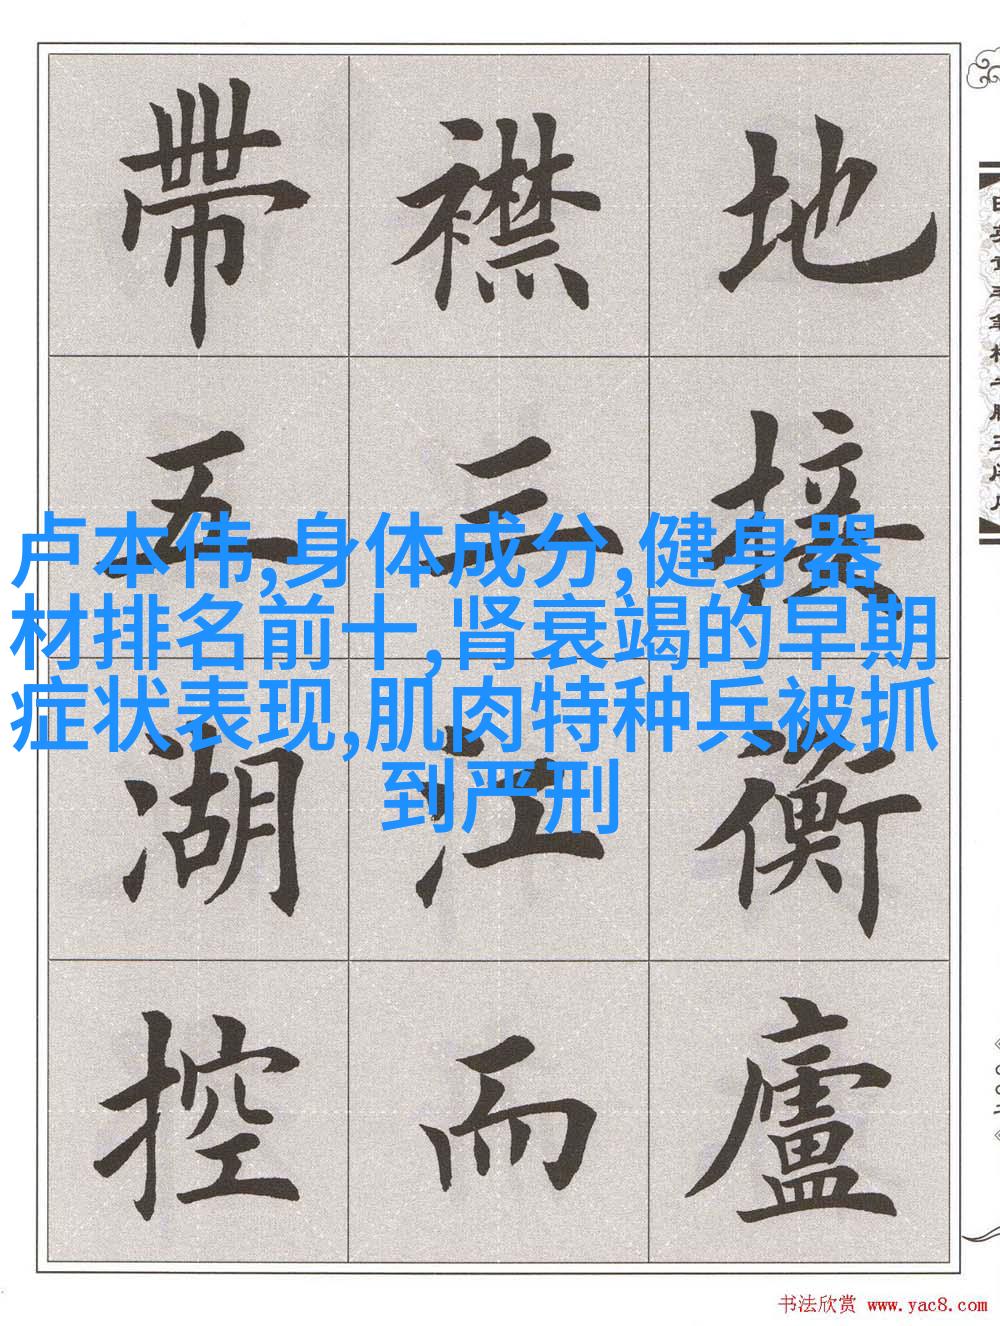 地接衡廬
襟三江而
帶五湖控
卢本伟,身体成分,健身器
材排名前十,肾衰竭的早期
症状表现,肌肉特种兵被抓
到严刑
书法欣赏 www.yac8.com